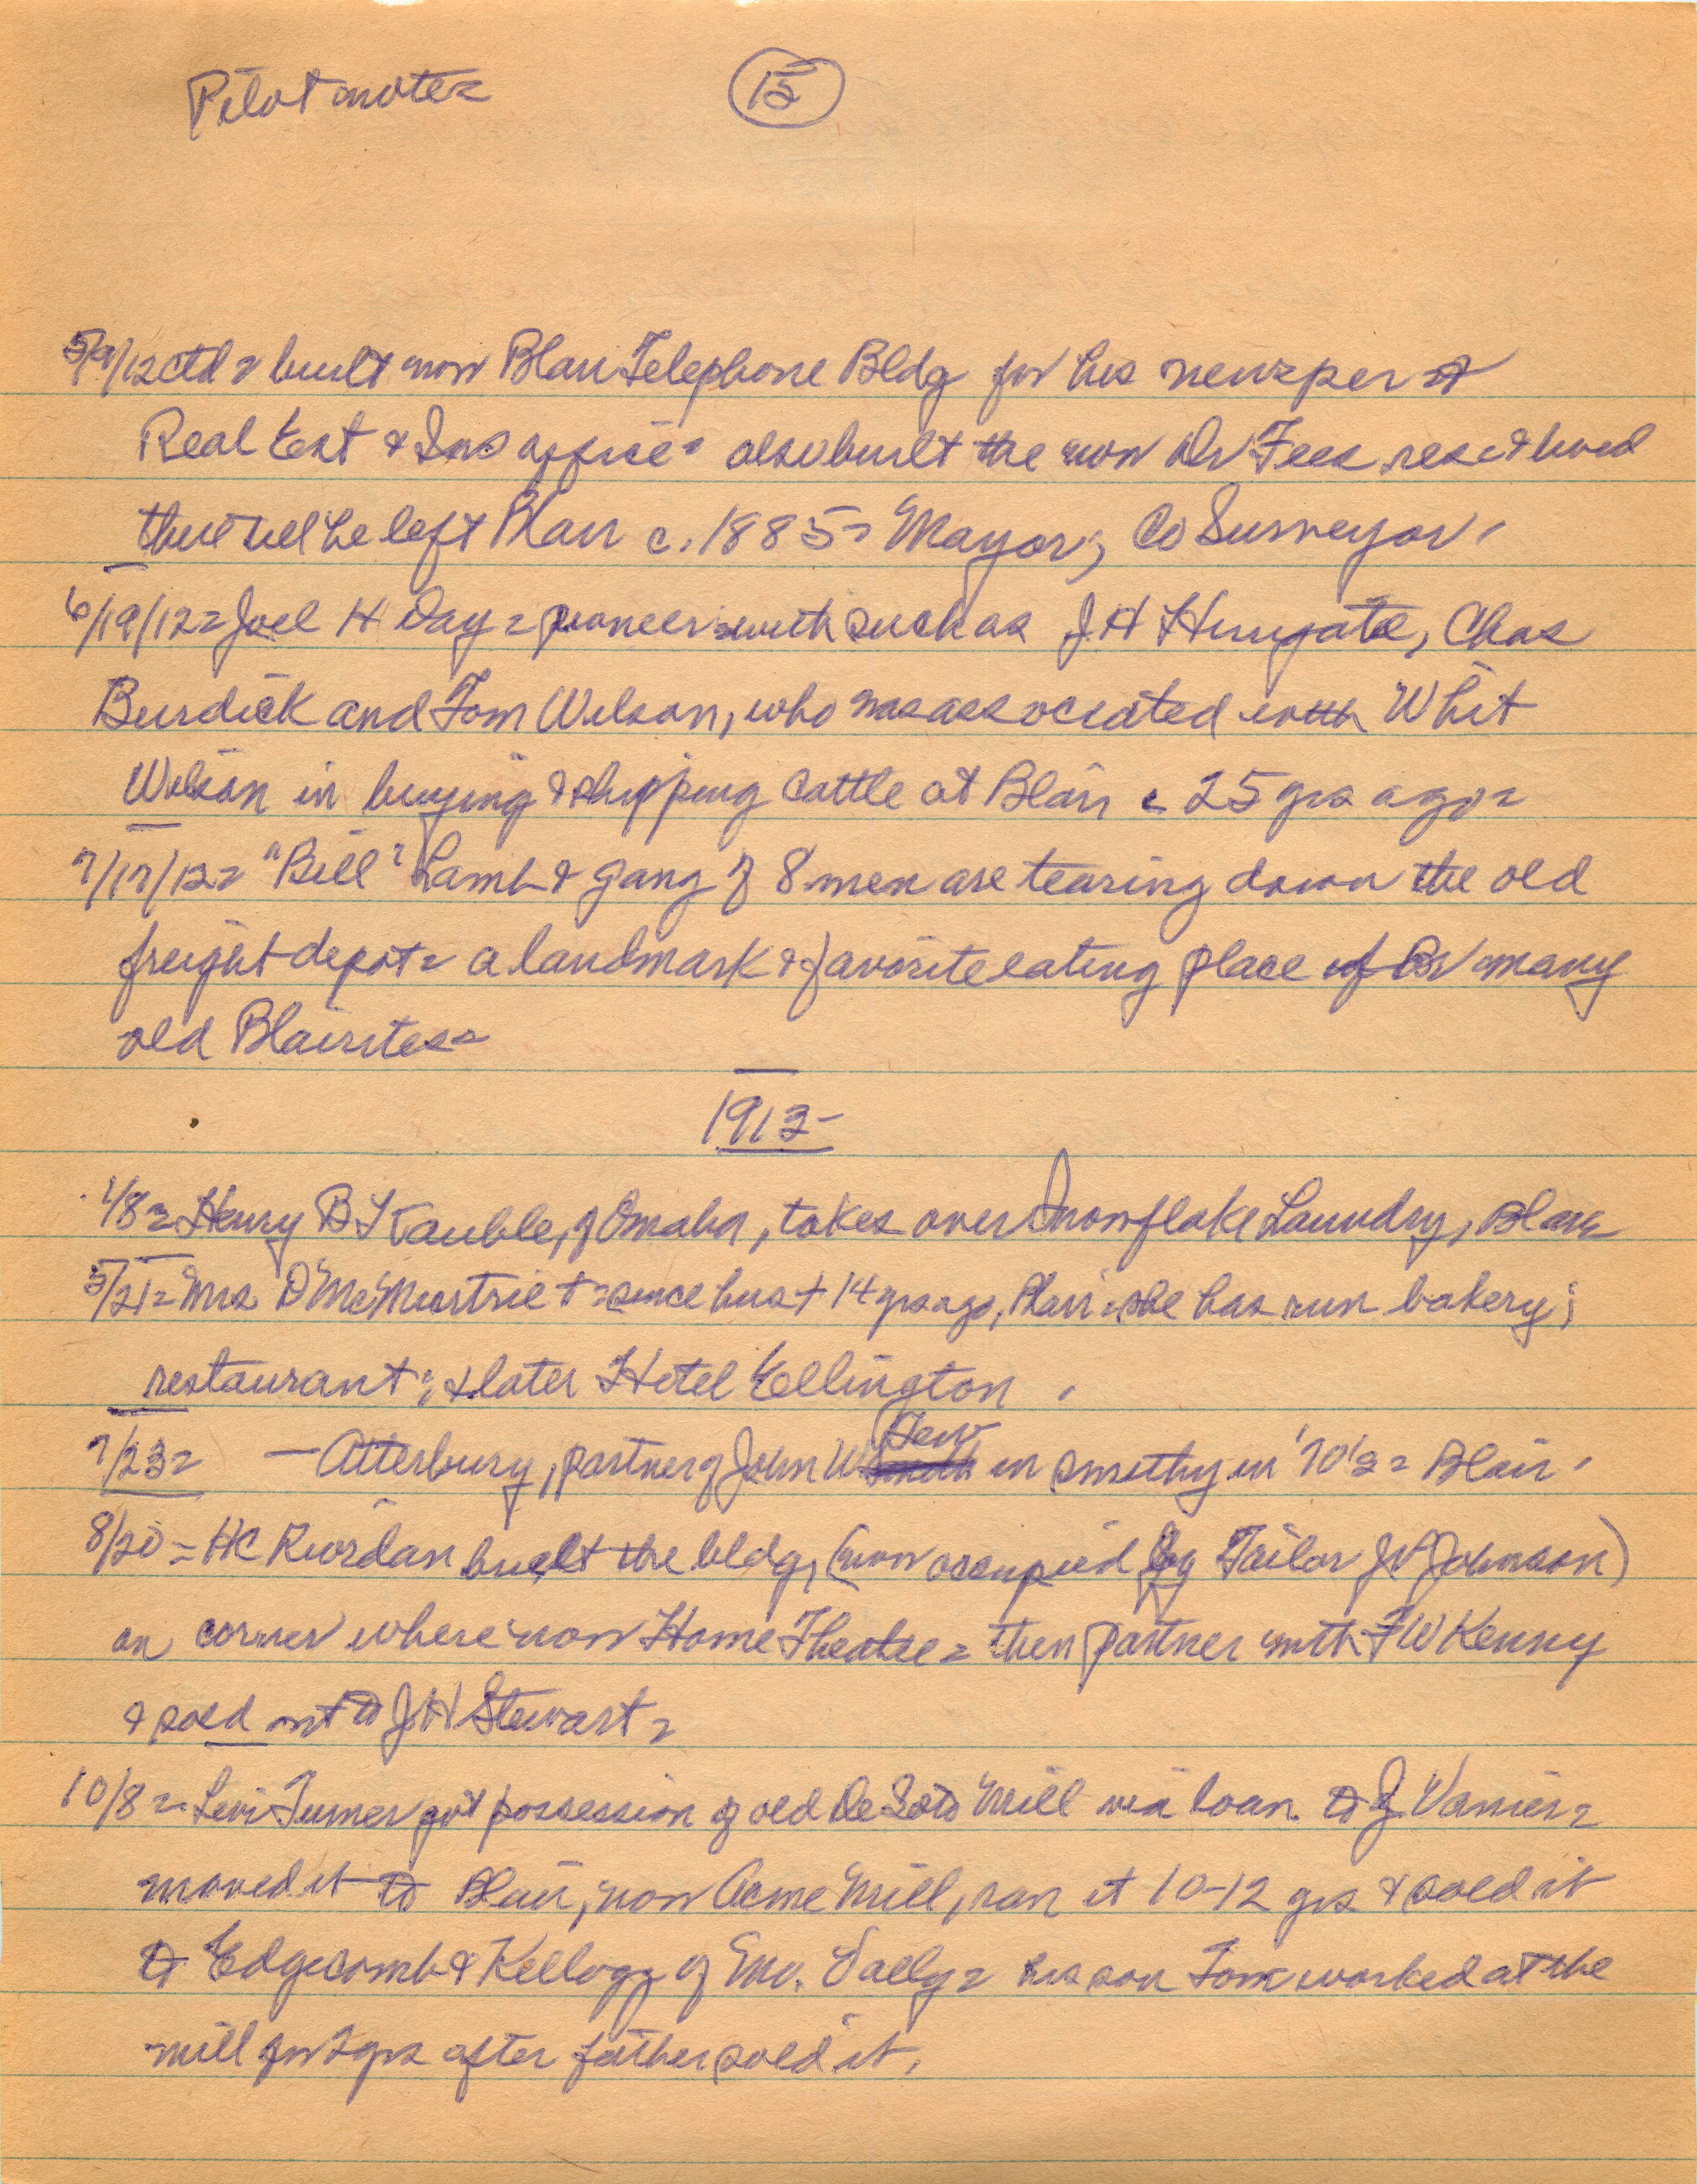 Pilot notes
15
5/9/12 ctd = built now Blair Telephone Bldg for his newsper &
Real Est & Ins office = also built the now Dr Fees res. & lived
there till he left Blair c. 1885 = Mayor; Co Surveyor.
6/19/12 = Joel H Day = pioneer = with such as J H Hungate, Chas
Burdick and Tom Wilson, who was associated with Whit
Wilson in buying & shipping cattle at Blair c 25 yrs ago =
7/17/12 = "Bill" Lamb & gang of 8 men are tearing down the old
freight depot = a landmark & favorite eating place of many
old Blairites =
1913 -
1/8 = Henry B Kauble, of Omaha, takes over Snowflake Laundry, Blair
5/21 = Mrs D McMurtrie + = since hus + 14 yrs ago, Blair = she has run bakery;
restaurant; & later Hotel Ellington .
7/23 = — Atterbury, partner of John W Dew in smithy in '70's = Blair .
8/20 = HC Riordan built the bldg, (now occupied by Tailor J P Johnson)
on corner where now Home Theatre = then partner with FW Kenny
& sold out to J H Stewart =
10/8 = Levi Turner got possession of old De Soto Mill via loan to J Vanier =
moved it to Blair, now Acme Mill, ran it 10-12 yrs & sold it
to Edgecomb & Kellogg of Mo. Vally = his son Tom worked at the
mill for 2 yrs after father sold it.